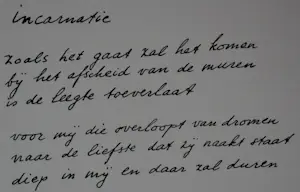 incarnatie
zoals het gaat zal het komen
bij het afscheid van de muren
is de leegte toeverlaat
voor mij die overloopt van dromen
naar de liefste dat zij naakt staat
diep in mij en daar zal duren